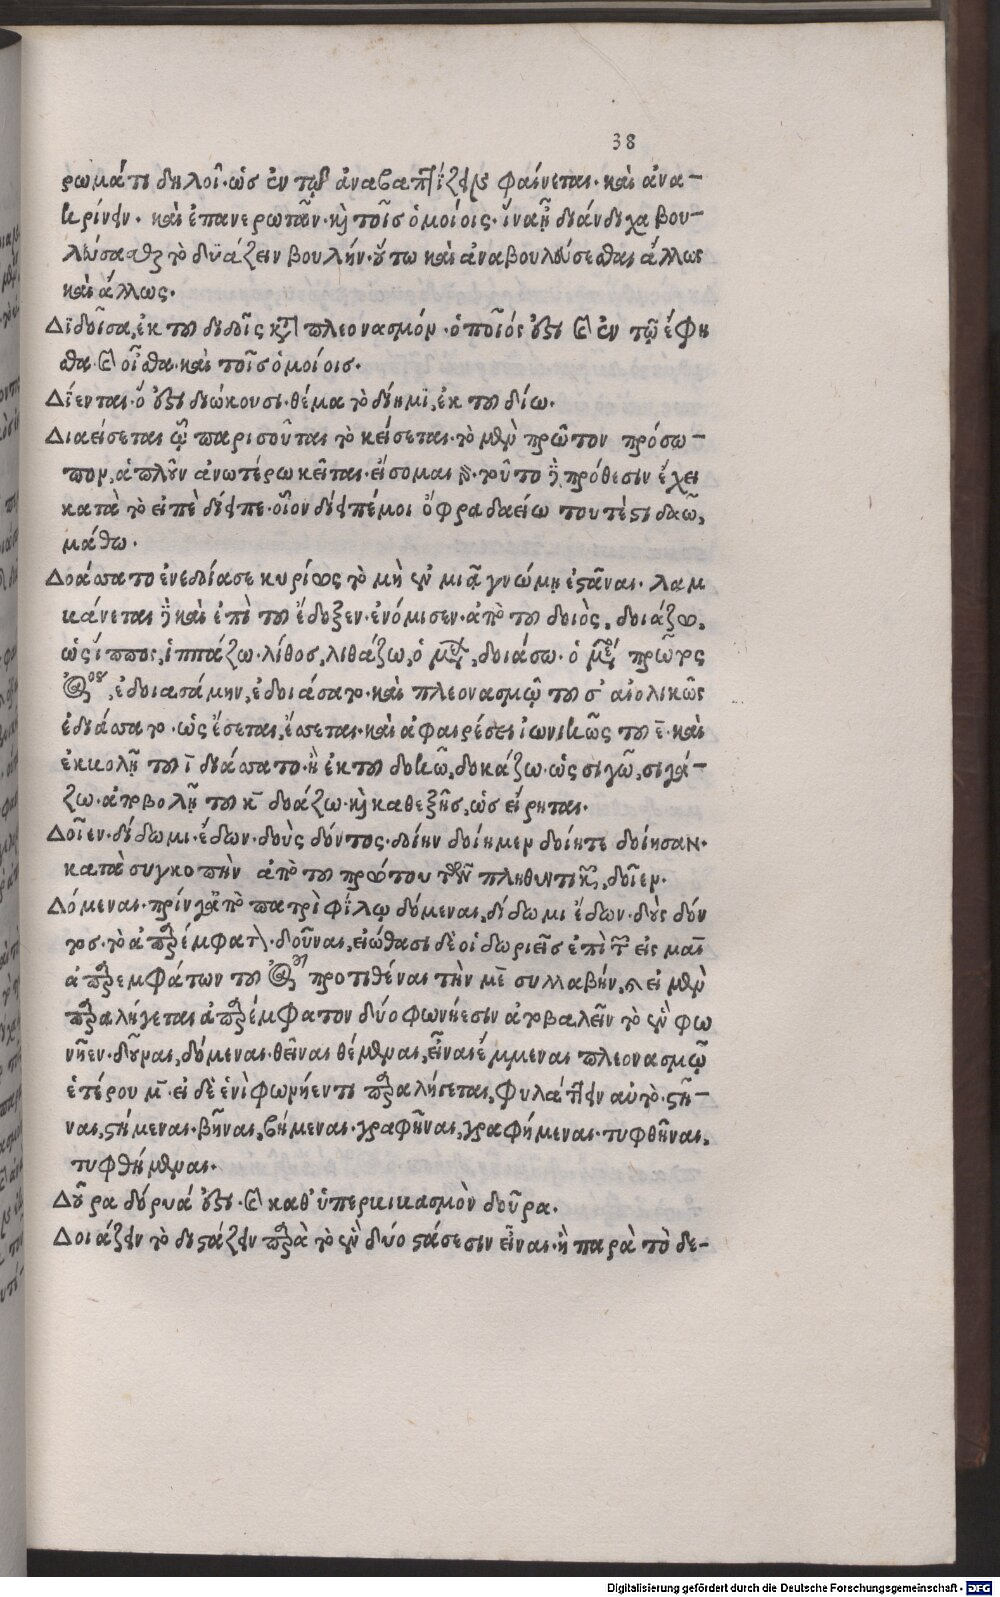 38
ρωμάτι δηλοῖ· ὡς ἐν τῷ ἀναβαπτίζειν φαίνεται· καὶ ἀνα-
κρίνειν· καὶ ἐπανερωτᾶν· καὶ τοῖς ὁμοίοις· ἵνα ᾖ διάνδιχα βου-
λεύσασθαι τὸ δυάζειν βουλήν· οὕτω καὶ ἀναβουλεύσεσθαι ἄλλως
καὶ ἄλλως.
Διδοῖσα, ἐκ τοῦ διδοῖς κατὰ πλεονασμόν· ὁποῖός ἐστι καὶ ἐν τῷ ἔφη
σθα· καὶ οἶσθα· καὶ τοῖς ὁμοίοις.
Δίενται· ὅ ἐστι διώκουσι· θέμα τὸ δίημι, ἐκ τοῦ δίω.
Διαείσεται ᾧ παρισοῦται τὸ κείσεται· τὸ μὲν πρῶτον πρόσω-
πον, ἁπλοῦν ἀνωτέρω κεῖται· εἴσομαι· τοῦτο δὲ πρόθεσιν ἔχει
κατὰ τὸ εἰπὲ δίειπε· οἷον δίειπέ μοι ὄφρα δαείω τουτέστι δαῶ,
μάθω.
Δοάσσατο ἐνεδοίασε κυρίως τὸ μὴ ἐν μιᾷ γνώμῃ ἑστᾶναι· λαμ
βάνεται δὲ καὶ ἐπὶ τοῦ ἔδοξεν· ἐνόμισεν· ἀπὸ τοῦ δοιὸς, δοιάζω,
ὡς ἵππος, ἱππάζω· λίθος, λιθάζω, ὁ μέλλων, δοιάσω· ὁ μέσος πρῶτος
ἀόριστος, ἐδοιασάμην, ἐδοιάσατο· καὶ πλεονασμῷ τοῦ σ αἰολικῶς
ἐδοιάσσατο· ὡς ἔσεται, ἔσσεται· καὶ ἀφαιρέσει ἰωνικῶς τοῦ ε· καὶ
ἐκβολῇ τοῦ ι δοάσσατο· ἢ ἐκ τοῦ δοκῶ, δοκάζω· ὡς σιγῶ, σιγά-
ζω· ἀποβολῇ τοῦ κ δοάζω· καὶ καθεξῆς, ὡς εἴρηται.
Δοῖεν· δίδωμι· ἔδων· δοὺς δόντος· δοίην δοίημεν δοίητε δοίησαν·
κατὰ συγκοπὴν ἀπὸ τοῦ πρώτου τῶν πληθυντικῶν, δοῖεν.
Δόμεναι· πρίν γ' ἀπὸ πατρὶ φίλῳ δόμεναι, δίδωμι ἔδων· δοὺς δόν
τος· τὸ ἀπαρέμφατον· δοῦναι, εἰώθασι δὲ οἱ δωριεῖς ἐπὶ τῶν εἰς ναι
ἀπαρεμφάτων τοῦ ἀορίστου προτιθέναι τὴν με συλλαβήν, καὶ εἰ μὲν
παραλήγεται ἀπαρέμφατον δύο φωνήεσιν ἀποβαλεῖν τὸ ἓν φω
νῆεν· δοῦναι, δόμεναι· θεῖναι θέμεναι, εἶναι ἔμμεναι πλεονασμῷ
ἑτέρου μ· εἰ δὲ ἑνὶ φωνήεντι παραλήγεται, φυλάττειν αὐτὸ· στῆ-
ναι, στήμεναι· βῆναι, βήμεναι· γραφῆναι, γραφήμεναι· τυφθῆναι,
τυφθήμεναι.
Δοῦρα δόρυά ἐστι· καὶ καθ' ὑπερβιβασμὸν δοῦρα.
Δοιάζειν τὸ διστάζειν παρὰ τὸ ἐν δύο στάσεσιν εἶναι· ἢ παρὰ τὸ δε-
Digitalisierung gefördert durch die Deutsche Forschungsgemeinschaft - DFG